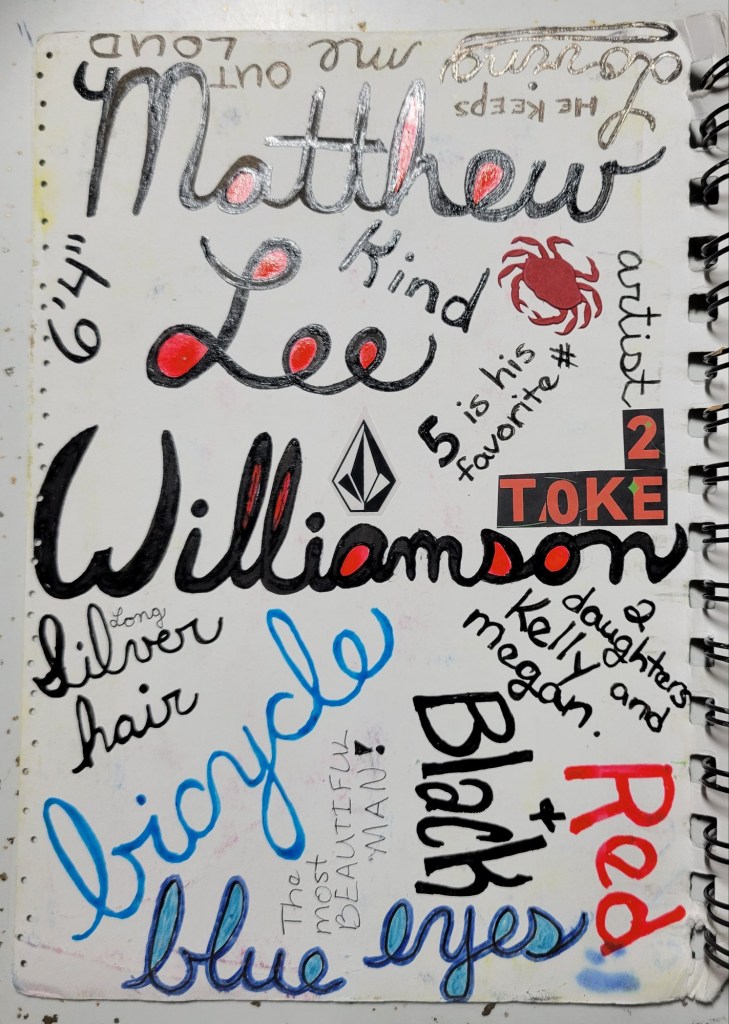 HE KEEPS
Loving me OUT LOUD
Matthew
Lee
Williamson
6'4"
Kind
artist
5 is his
favorite #
2
TOKE
Long
Silver
hair
bicycle
2
daughters
Kelly and
megan.
The
most
BEAUTIFUL
MAN!
Black
+
Red
blue eyes